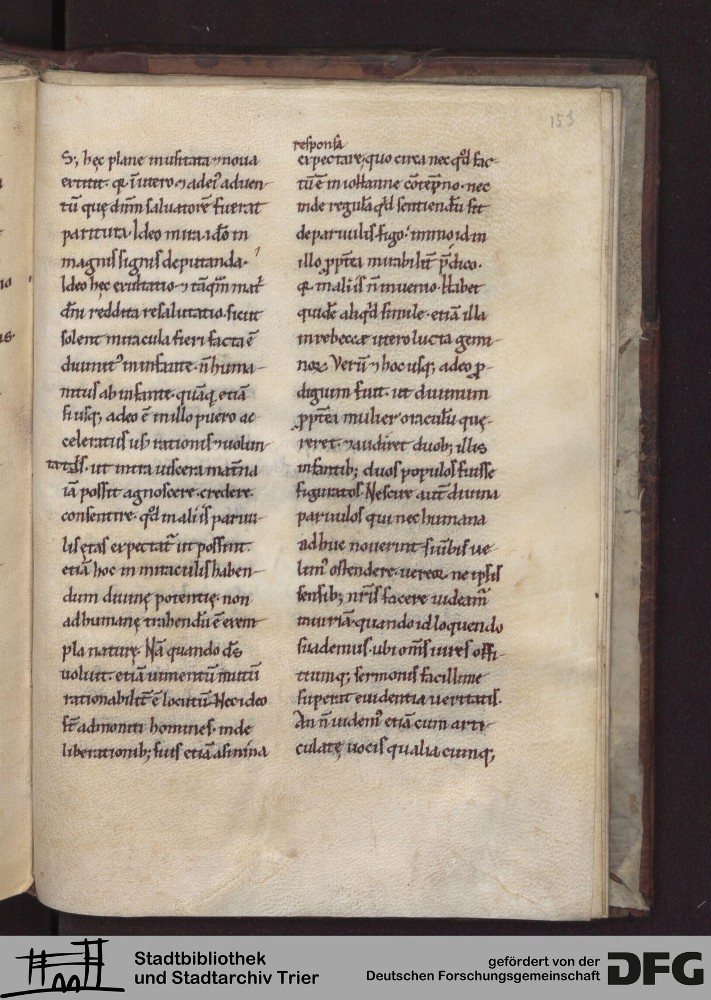 153
S; hęc plane inusitata ⁊ noua
extitit. q̃ ĩ utero ⁊ adeĩ aduen-
tũ quę dñm saluatorẽ fuerat
paritura. Ideo mira. ideo in
magnis signis deputanda.
Ideo hęc exultatio ⁊ tãqm̃ mat̃
dñi reddita resalutatio. sicut
solent miracula fieri facta ẽ
diuinit' in infante. ñ huma-
nitus ab infante. quãq̃ etiã
si usq; adeo ẽ in illo puero ac
celeratus usus rationis ⁊ uolun-
tatis. ut intra uiscera mat̃na
iã possit agnoscere. credere.
consentire. qd̃ in aliis paruu-
lis ętas expectat̃ ut possint.
etiã hoc in miraculis haben-
dum diuinę potentię. non
ad humanę trahendũ ẽ exem
pla naturę. Nã quando dš
uoluit. etiã iumentũ mutũ
rationabilit̃ ẽ locutũ. Nec ideo
st̃ admoniti homines. inde
liberationib; suis etiã asinina
responsa
expectare, quo circa nec qd̃ fac-
tũ ẽ in iohanne cõtẽpno. nec
inde regulã qd̃ sentiendũ sit
de paruulis figo. immo id in
illo ppt̃ea mirabilit̃ p̃dico.
q̃ in aliis ñ inuenio. Habet
quidẽ aliqd̃ simile. etiã illa
in rebeccæ utero lucta gemi-
noꝝ. Verũ ⁊ hoc usq; adeo ꝓ-
digium fuit. ut diuinum
ppt̃ea mulier oraculũ quę-
reret. ⁊ audiret duob; illis
infantib; duos populos fuisse
figuratos. Nescire aut̃ diuina
paruulos qui nec humana
adhuc nouerint si uerbis ue-
lim' ostendere. uereor ne ipsis
sensib; nr̃is facere uideam̃
iniuriã. quando id loquendo
suademus. ubi om̃s uires offi-
tiumq; sermonis facillime
superat euidentia ueritatis.
An ñ uidem' etiã cum arti-
culatę uocis qualiacumq;
Stadtbibliothek
und Stadtarchiv Trier
gefördert von der
Deutschen Forschungsgemeinschaft
DFG